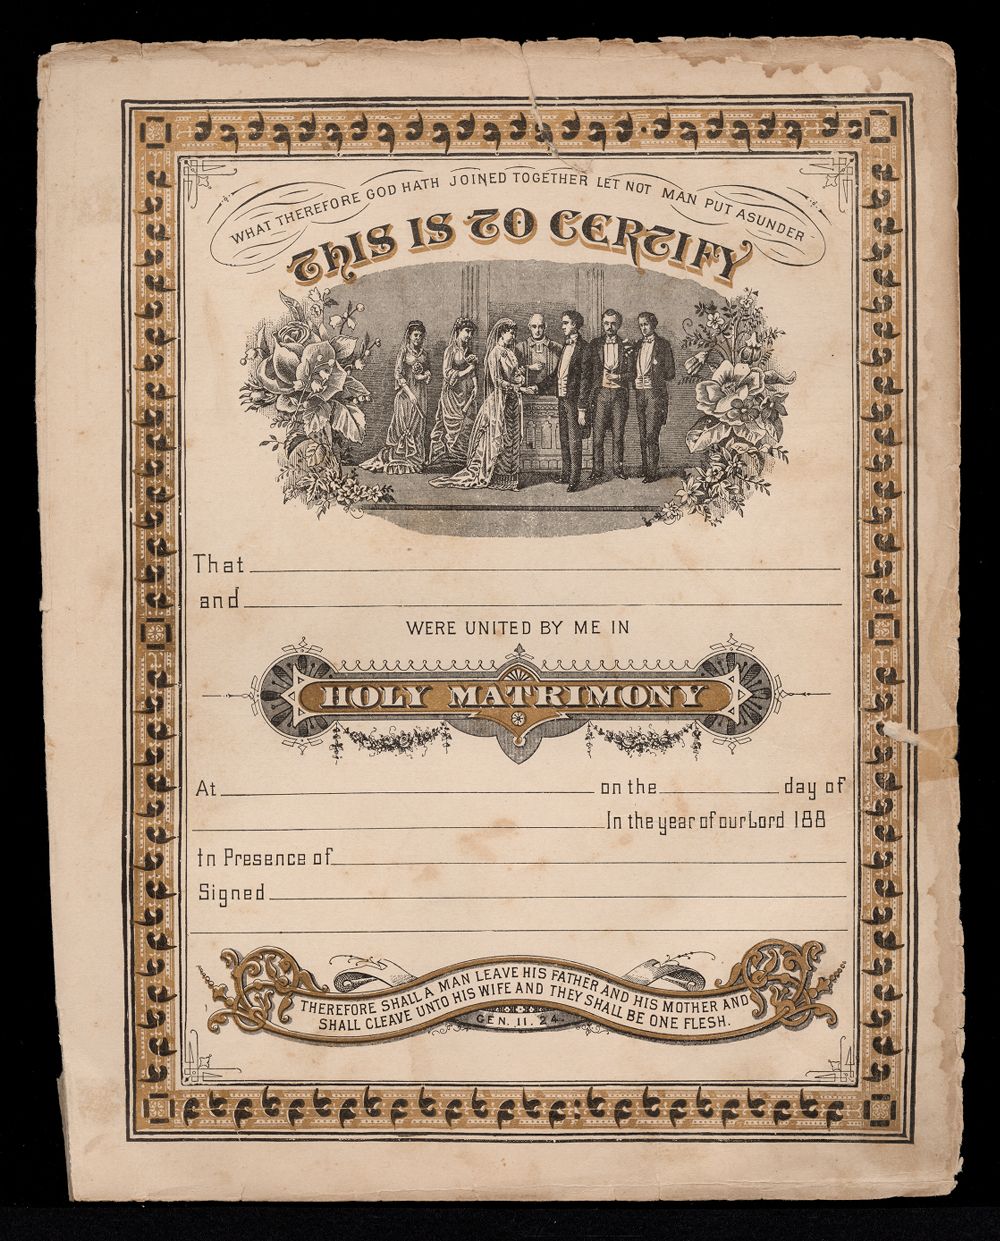 WHAT THEREFORE GOD HATH JOINED TOGETHER LET NOT MAN PUT ASUNDER
THIS IS TO CERTIFY
That
and
WERE UNITED BY ME IN
HOLY MATRIMONY
At on the day of
In the year of our Lord 188
In Presence of
Signed
THEREFORE SHALL A MAN LEAVE HIS FATHER AND HIS MOTHER AND
SHALL CLEAVE UNTO HIS WIFE AND THEY SHALL BE ONE FLESH.
GEN. II. 24.